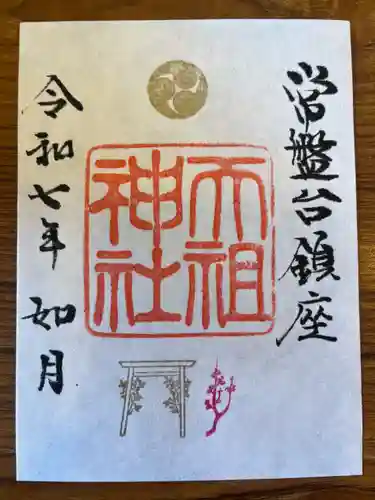 常盤台鎮座
天祖神社
令和七年 如月